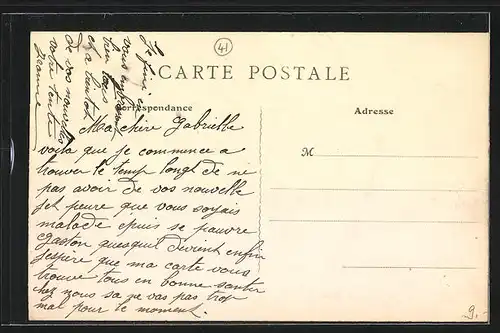 41
CARTE POSTALE
Correspondance
Adresse
M
Ma chère Gabrielle
voila que je commence a
trouver le temp longt de ne
pas avoir de vos nouvelle
jet peure que vous soyais
malade épuis se pauvre
Gaston quesquil devient enfin
jespère que ma carte vous
trouve tous en bonne santer
chez nous sa ne vas pas trop
mal pour le moment.
Je fini en
vous embrassant
bien tous
et a bientot
de vos nouvelles
votre tente
Jeanne
9.-